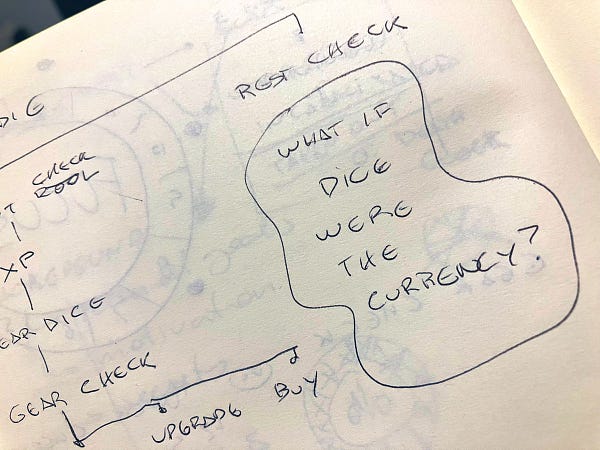 REST CHECK
DIE
WHAT IF
DICE
WERE
THE
CURRENCY?
CHECK
XP
DICE
GEAR CHECK
UPGRADE
BUY